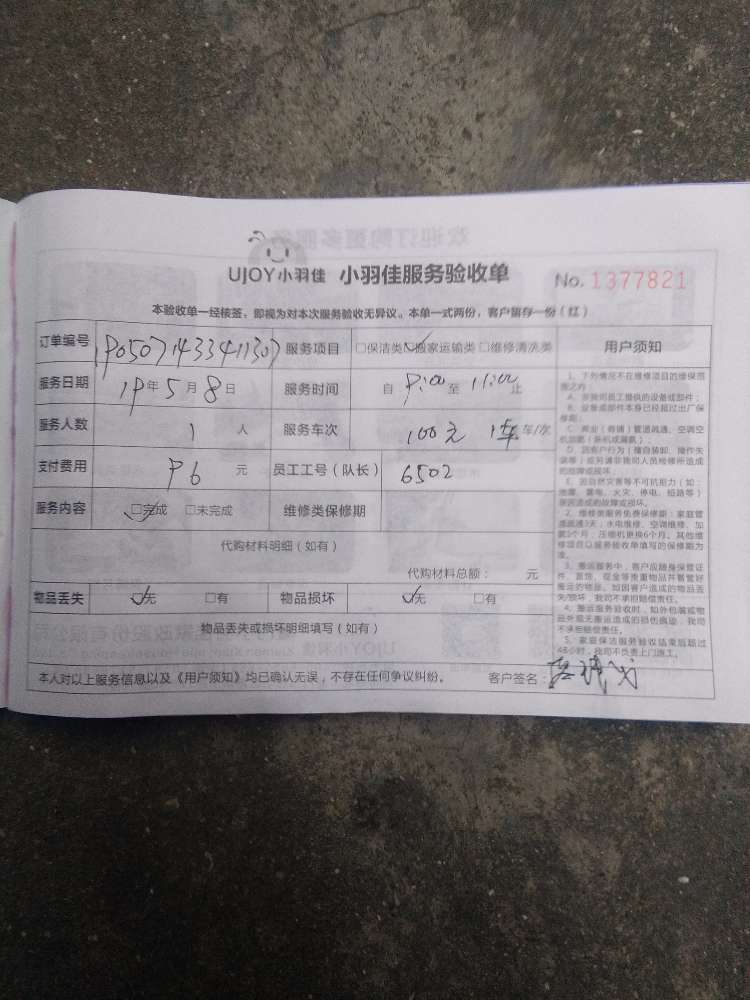 UJOY小羽佳 小羽佳服务验收单 No. 1377821
本验收单一经核签、即视为对本次服务验收无异议。本单一式两份，客户留存一份（红）
订单编号 190507143341130 服务项目 □保洁类 ☑搬家运输类 □维修清洗类 用户须知
服务日期 19年5月8日 服务时间 自 9:00 至 11:00 止
服务人数 1 人 服务车次 100元 1车 车/次
支付费用 96 元 员工工号（队长） 6502
服务内容 ☑完成 □未完成 维修类保修期
代购材料明细（如有）
代购材料总额： 元
物品丢失 ☑无 □有 物品损坏 ☑无 □有
物品丢失或损坏明细填写（如有）
本人对以上服务信息以及《用户须知》均已确认无误，不存在任何争议纠纷。 客户签名：
1、下列情况不在维修项目的维保范围之内：
A、非我司员工提供的设备或部件；
B、设备或部件本身已经超过出厂保修期；
C、商业（商铺）管道疏通、空调空机加氟（拆机或漏氟）；
D、因客户行为（擅自装卸、操作失误等）或另请非我司人员检修所造成的故障或损坏。
E、因自然灾害等不可抗拒力（如：地震、雷电、火灾、停电、短路等）原因造成的故障或损坏。
2、维修类服务免费保修期：家庭管道疏通3天；水电维修、空调维修、加氟3个月，压缩机更换6个月。其他维修项目以服务验收单填写的保修期为准。
3、搬运服务中，客户应随身保管证件、首饰、现金等贵重物品并看管好搬运的物品。如因客户造成的物品丢失/损坏，我司不承担赔偿责任。
4、搬运服务验收时，如外包装或物品外观无搬运造成的损伤痕迹，我司不承担赔偿责任。
5、家庭保洁服务验收结束后超过48小时，我司不负责上门返工。